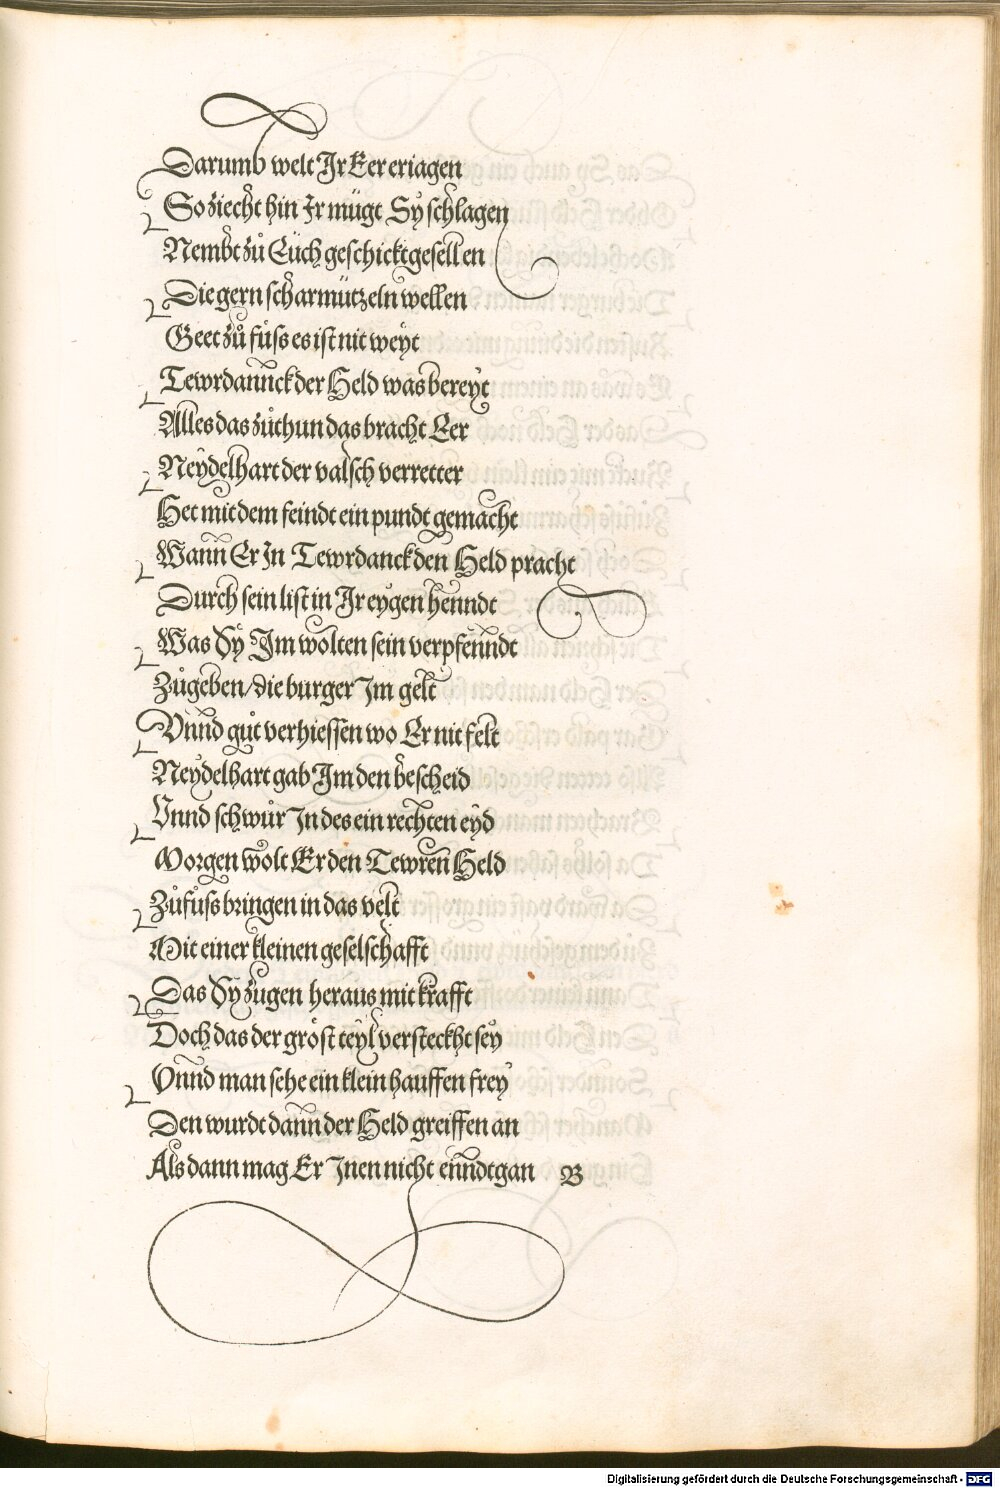 Darumb welt Jr Eer eriagen
So ziecht hin Ir mügt Sy schlagen
Nembt zů Eüch geschickt gesellen
Die gern scharmützeln wellen
Geet zů fůss es ist nit weyt
Tewrdannck der Held was bereyt
Alles das zůthun das bracht Eer
Neydelhart der valsch verretter
Het mit dem feindt ein pundt gemacht
Wann Er In Tewrdanck den Held pracht
Durch sein list in Jr eygen henndt
Was Sy Im wolten sein verpfenndt
Zůgeben / die burger Im gelt
Vnnd gůt verhiessen wo Er nit felt
Neydelhart gab Im den bescheid
Vnnd schwůr In des ein rechten eyd
Morgen wolt Er den Tewren Held
Zůfůss bringen in das velt
Mit einer kleinen geselschafft
Das Sy zugen heraus mit krafft
Doch das der gröst teyl versteckht sey
Vnnd man sehe ein klein hauffen frey
Den wurdt dann der Held greiffen an
Als dann mag Er Inen nicht enndtgan B
Digitalisierung gefördert durch die Deutsche Forschungsgemeinschaft - DFG